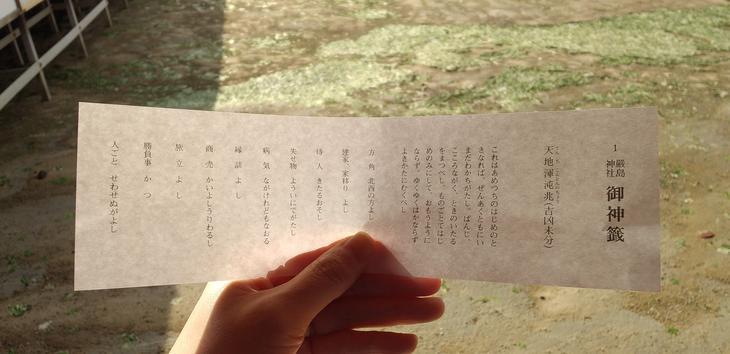 1
嚴島神社
御神籤
てんちこんとんちょう
天地渾沌兆(吉凶未分)
これはあめつちのはじめのと
きなれば、ぜんあくともにい
まだわかちがたし。ばんじ、
こころながく、ときのいたる
をまつべし。ものごとてはじ
めのみにして、おもうように
ならず。ゆくゆくはかならず
よきかたにむくべし
方 角 北西の方よし
建家、家移り よし
待 人 きたるおそし
失せ物 よういにでがたし
病 気 ながけれどもなおる
縁 談 よ し
商 売 かいよしうりわるし
旅 立 よ し
勝負事 か つ
人ごと せわせぬがよし